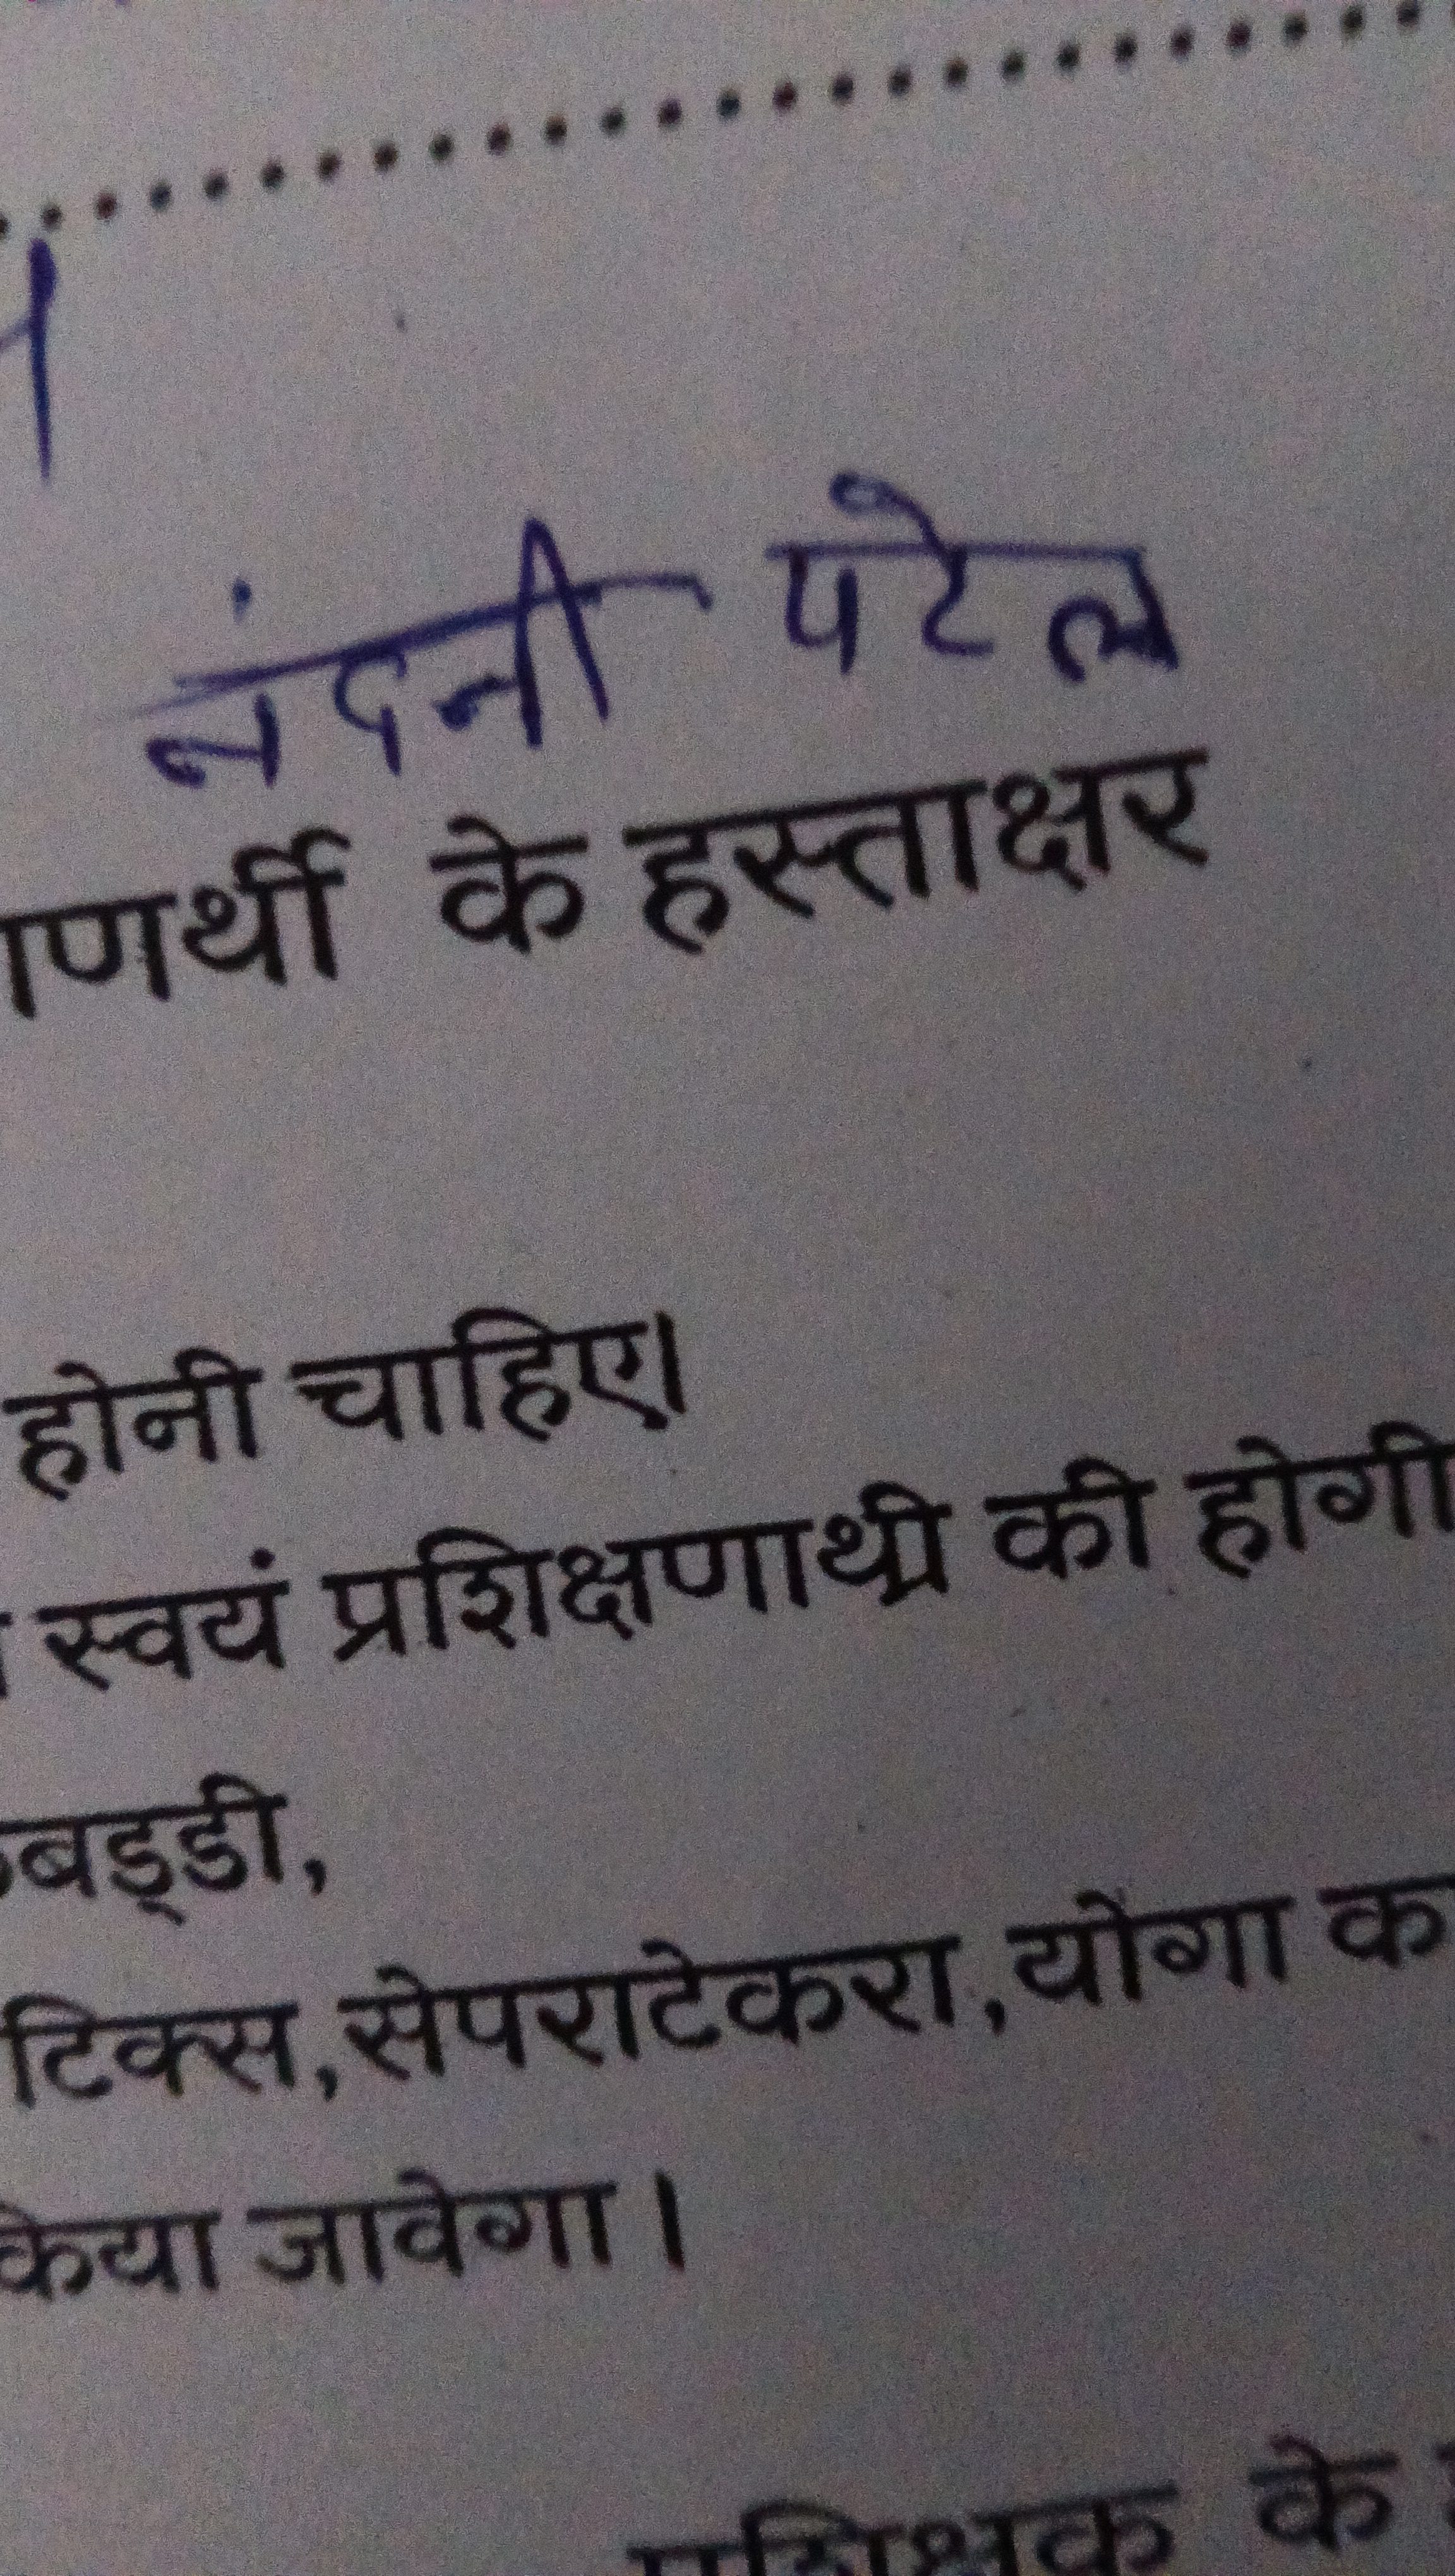 नंदनी पटेल
ाणर्थी के हस्ताक्षर
होनी चाहिए।
स्वयं प्रशिक्षणाथ्री की होगी
बड्डी,
टिक्स,सेपराटेकरा,योगा क
केया जावेगा।
प्रशिक्षक के